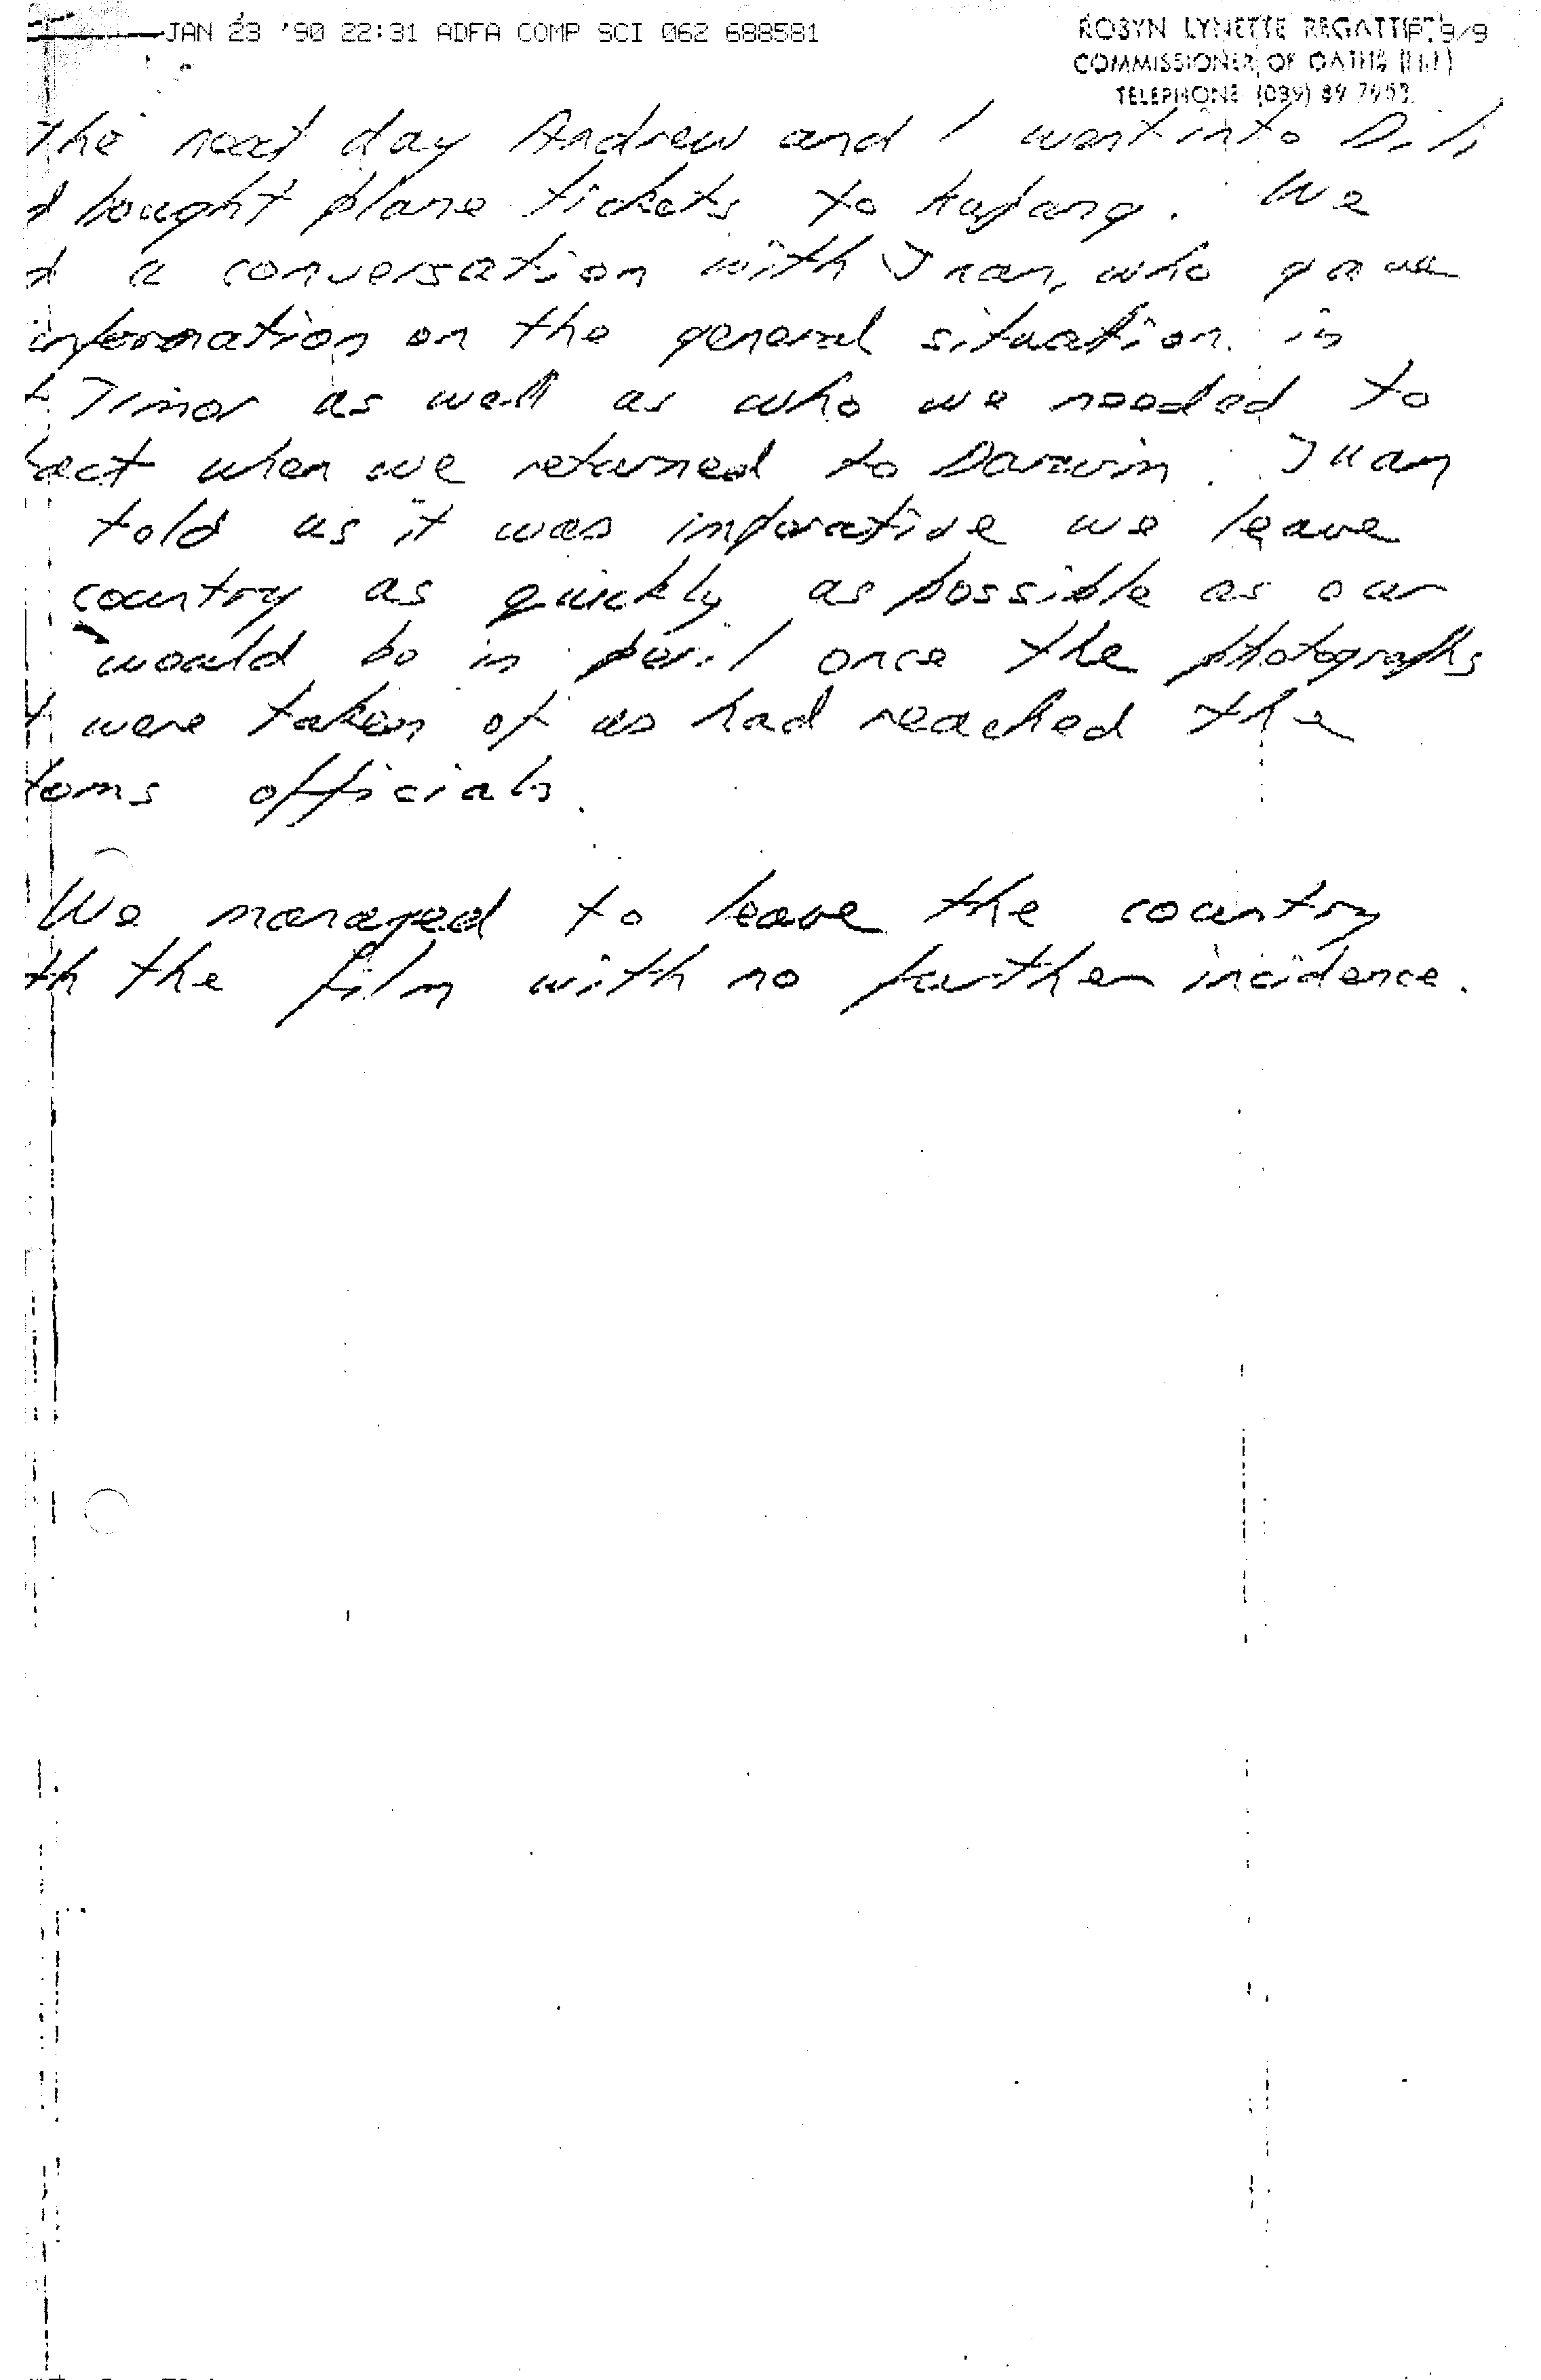 JAN 23 '90 22:31 ADFA COMP SCI 062 688581 P.9/9
ROBYN LYNETTE REGATTIERI
COMMISSIONER OF OATHS
TELEPHONE (089) 89 7953
The next day Andrew and I went into Dili
d bought plane tickets to Kupang. We
d a conversation with Juan, who gave
information on the general situation in
t Timor as well as who we needed to
tact when we returned to Darwin. Juan
told us it was imperative we leave
country as quickly as possible as our
would be in peril once the photographs
t were taken of us had reached the
toms officials.
We managed to leave the country
th the film with no further incidence.